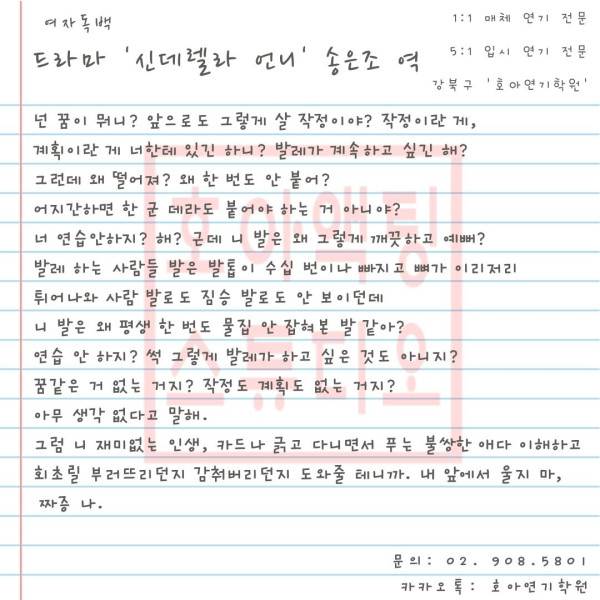 여자독백
1:1 매체 연기 전문
드라마 '신데렐라 언니' 송은조 역
5:1 입시 연기 전문
강북구 '호아연기학원'
넌 꿈이 뭐니? 앞으로도 그렇게 살 작정이야? 작정이란 게,
계획이란 게 너한테 있긴 하니? 발레가 계속하고 싶긴 해?
그런데 왜 떨어져? 왜 한 번도 안 붙어?
어지간하면 한 군 데라도 붙어야 하는 거 아니야?
너 연습안하지? 해? 근데 니 발은 왜 그렇게 깨끗하고 예뻐?
발레 하는 사람들 발은 발톱이 수십 번이나 빠지고 뼈가 이리저리
튀어나와 사람 발로도 짐승 발로도 안 보이던데
니 발은 왜 평생 한 번도 물집 안 잡혀본 발 같아?
연습 안 하지? 썩 그렇게 발레가 하고 싶은 것도 아니지?
꿈같은 거 없는 거지? 작정도 계획도 없는 거지?
아무 생각 없다고 말해.
그럼 니 재미없는 인생, 카드나 긁고 다니면서 푸는 불쌍한 애다 이해하고
회초릴 부러뜨리던지 감춰버리던지 도와줄 테니까. 내 앞에서 울지 마,
짜증 나.
호아액팅
스튜디오
문의: 02. 908.5801
카카오톡: 호아연기학원